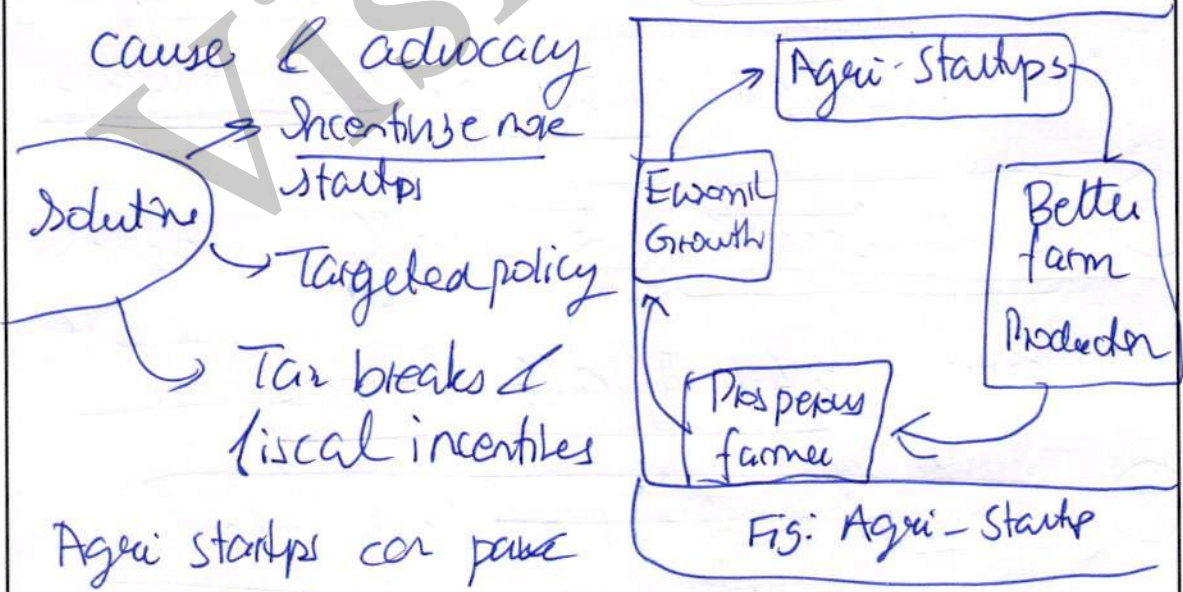 cause & advocacy
Incentivize more
startps
Solution
Targeted policy
Tax breaks &
fiscal incentives
Agri startps can pave
Agri-Startups
Better
farm
Production
Prosperous
farmer
Economic
Growth
Fig: Agri-Startp